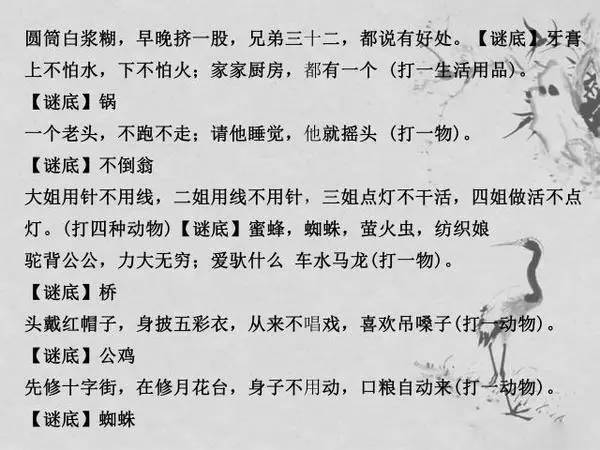 圆筒白浆糊，早晚挤一股，兄弟三十二，都说有好处。【谜底】牙膏
上不怕水，下不怕火；家家厨房，都有一个 (打一生活用品)。
【谜底】锅
一个老头，不跑不走；请他睡觉，他就摇头 (打一物)。
【谜底】不倒翁
大姐用针不用线，二姐用线不用针，三姐点灯不干活，四姐做活不点
灯。(打四种动物)【谜底】蜜蜂，蜘蛛，萤火虫，纺织娘
驼背公公，力大无穷；爱驮什么 车水马龙(打一物)。
【谜底】桥
头戴红帽子，身披五彩衣，从来不唱戏，喜欢吊嗓子(打一动物)。
【谜底】公鸡
先修十字街，在修月花台，身子不用动，口粮自动来(打一动物)。
【谜底】蜘蛛